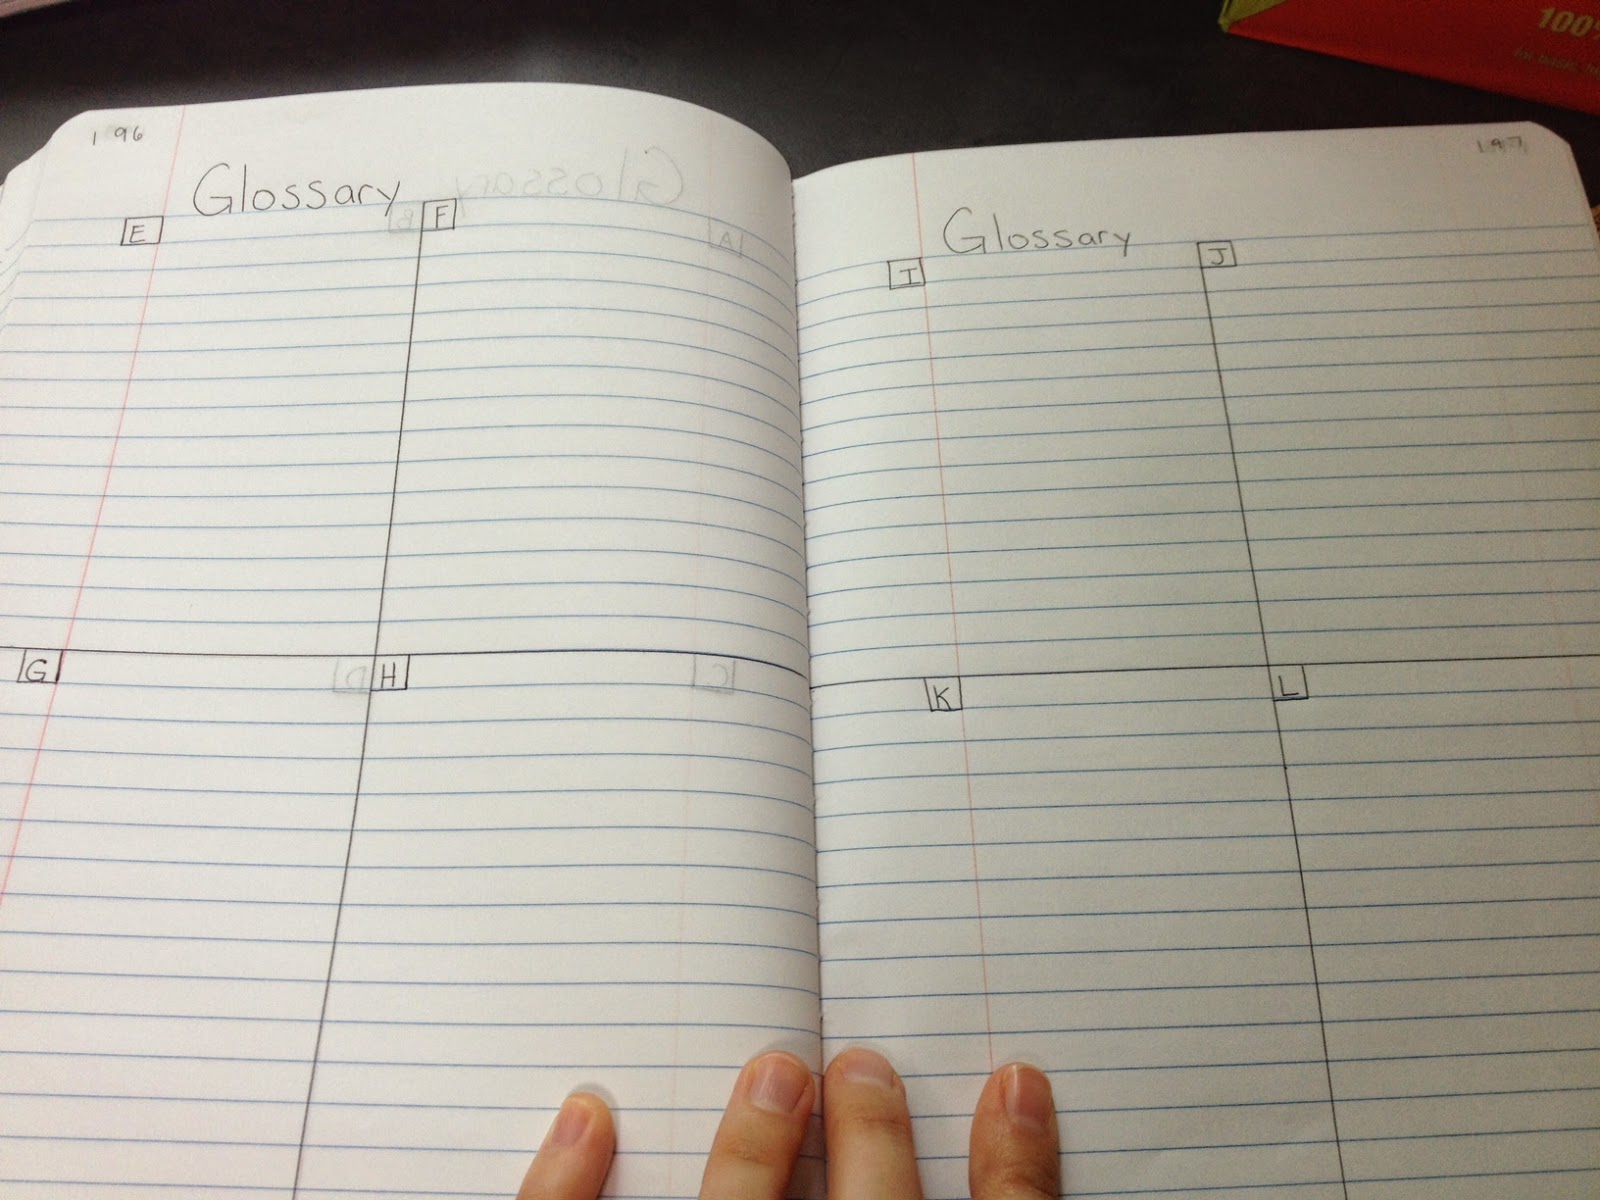 196
Glossary
E
F
G
H
197
Glossary
I
J
K
L
100%